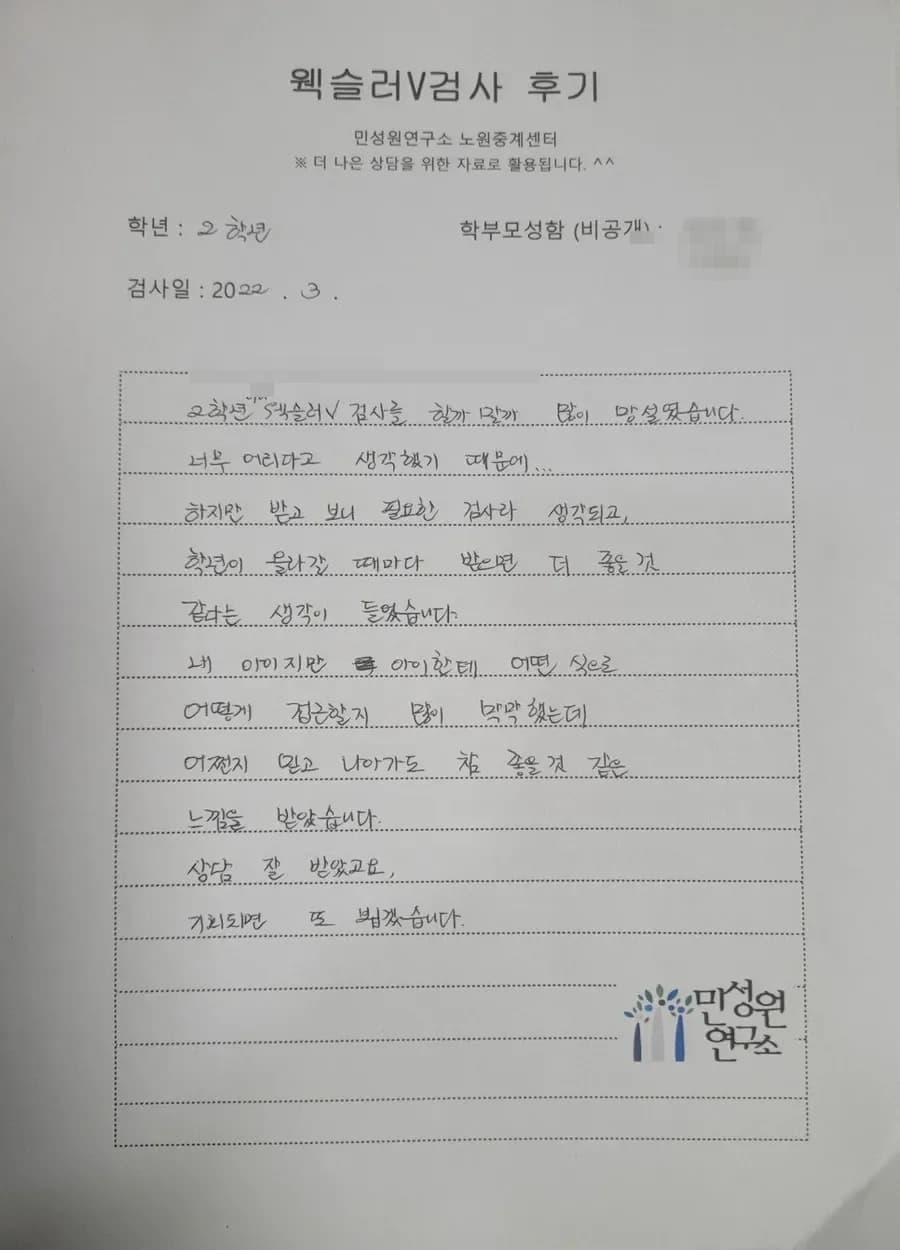 웩슬러V검사 후기
민성원연구소 노원중계센터
※ 더 나은 상담을 위한 자료로 활용됩니다. ^^
학년 : 2 학년
학부모성함 (비공개) :
검사일 : 2022 . 3 .
2학년 웩슬러V 검사를 할까 말까 많이 망설였습니다.
너무 어리다고 생각했기 때문에...
하지만 받고 보니 필요한 검사라 생각되고,
학년이 올라갈 때마다 받으면 더 좋을 것
같다는 생각이 들었습니다.
내 아이지만 아이한테 어떤 식으로
어떻게 접근할지 많이 막막했는데
어쩐지 믿고 나아가도 참 좋을 것 같은
느낌을 받았습니다.
상담 잘 받았고요,
기회되면 또 뵙겠습니다.
민성원
연구소